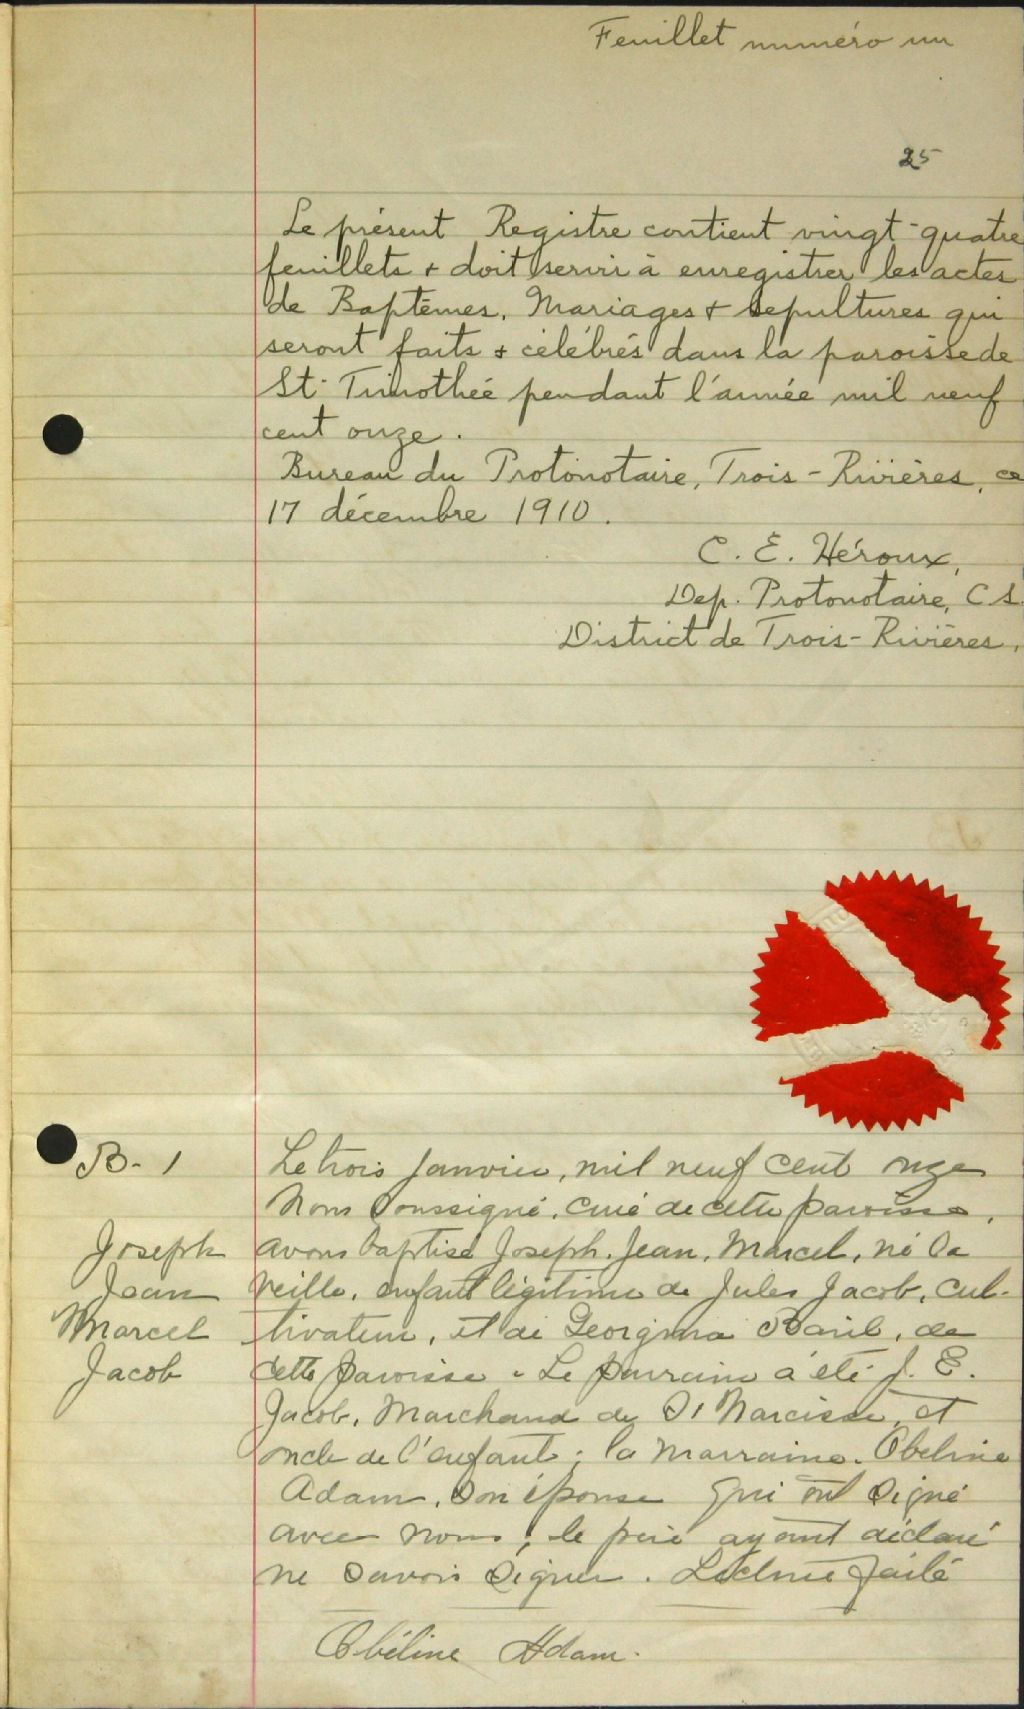 Feuillet numéro un
25
Le présent Registre contient vingt-quatre
feuillets + doit servir à enregistrer les actes
de Baptêmes, Mariages + Sépultures qui
seront faits + célébrés dans la paroisse de
St-Timothée pendant l'année mil neuf
cent onze.
Bureau du Protonotaire, Trois-Rivières, ce
17 décembre 1910.
C. E. Héroux,
Dep. Protonotaire, C S.
District de Trois-Rivières.
B. 1
Joseph
Jean
Marcel
Jacob
Le trois janvier, mil neuf cent onze
Nous soussigné, curé de cette paroisse,
avons baptisé Joseph. Jean. Marcel, né la
veille, enfant légitime de Jules Jacob, cul-
tivateur, et de Georgina Baril, de
cette paroisse. Le parrain a été J. E.
Jacob, Marchand de St Narcisse, et
oncle de l'enfant; la marraine. Obéline
Adam, son épouse qui ont signé
avec nous; le père ayant déclaré
ne savoir signer. Lecture faite
Obéline Adam.